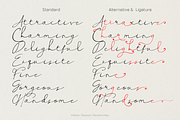 Standard
Alternative & Ligature
Attractive
Charming
Delightful
Exquisite
Fine
Gorgeous
Handsome
Attractive
Charming
Delightful
Exquisite
Fine
Gorgeous
Handsome